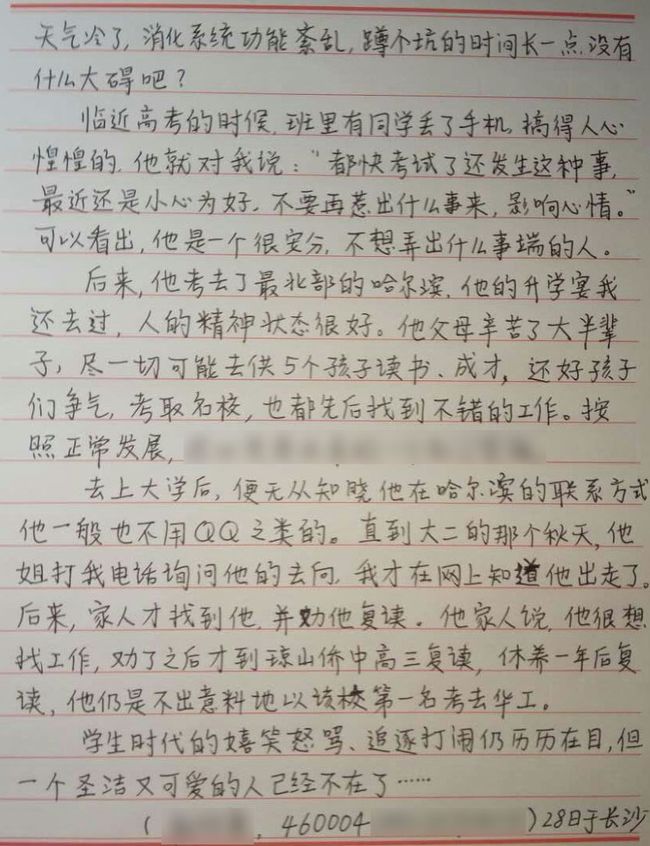 天气冷了,消化系统功能紊乱,蹲个坑的时间长一点,没有
什么大碍吧?
临近高考的时候,班里有同学丢了手机,搞得人心
惶惶的,他就对我说:"都快考试了还发生这种事,
最近还是小心为好,不要再惹出什么事来,影响心情。"
可以看出,他是一个很安分,不想弄出什么事端的人。
后来,他考去了最北部的哈尔滨,他的升学宴我
还去过,人的精神状态很好。他父母辛苦了大半辈
子,尽一切可能去供5个孩子读书、成才,还好孩子
们争气,考取名校,也都先后找到不错的工作。按
照正常发展,
去上大学后,便无从知晓他在哈尔滨的联系方式
他一般也不用QQ之类的。直到大二的那个秋天,他
姐打我电话询问他的去向,我才在网上知道他出走了。
后来,家人才找到他,并劝他复读。他家人说,他很想
找工作,劝了之后才到琼山侨中高三复读,休养一年后复
读,他仍是不出意料地以该校第一名考去华工。
学生时代的嬉笑怒骂、追逐打闹仍历历在目,但
一个圣洁又可爱的人已经不在了……
( , 460004 )28日于长沙